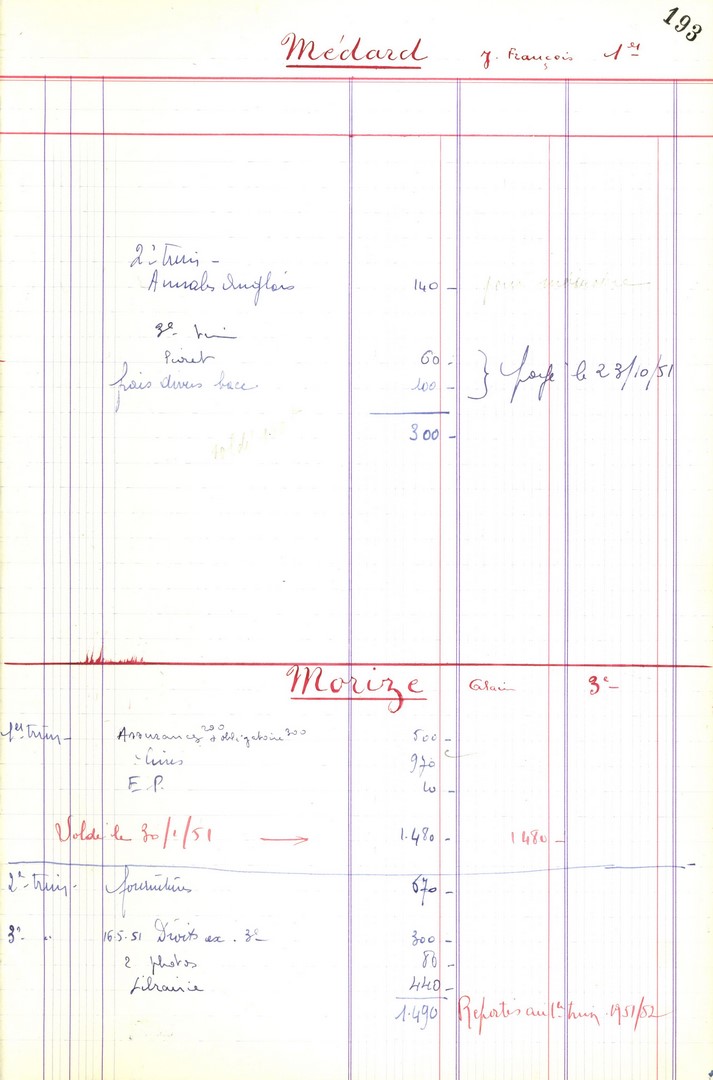 193
Médard J. François 1er
2e trim -
Annales Anglais 140 -
3e trim
Piret 60 -
frais divers bacc 100 - } payé le 23/10/51
300 -
Morize Alain 3e -
1er trim - Assurances 200 + obligatoire 300 500 -
Livres 970
E.P. 10 -
Soldé le 30/1/51 → 1.480 - 1480 -
2e trim - fournitures 670 -
3e " 16.5.51 Droits ex. 3e 300 -
2 photos 80 -
Librairie 440 -
1.490 Reportés au 1er trim. 1951/52